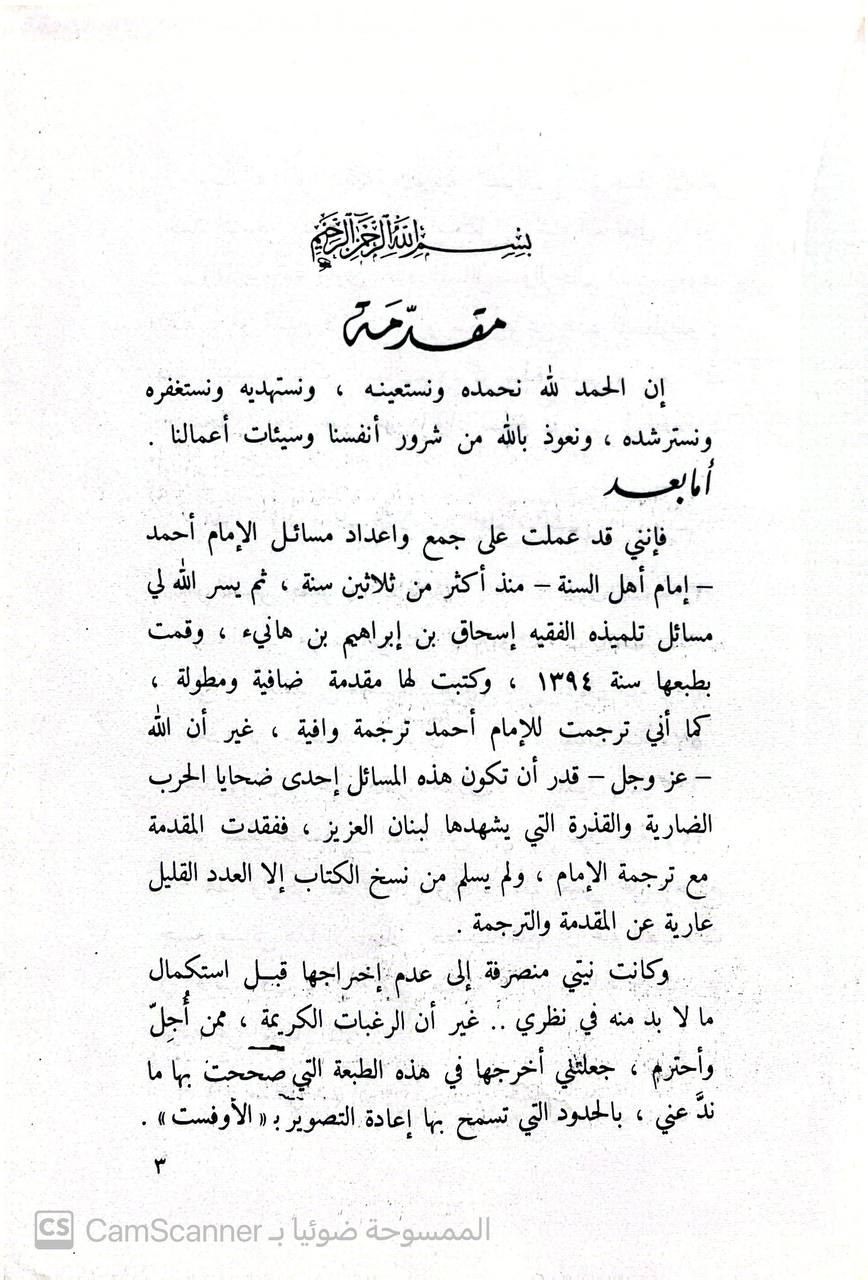 بسم الله الرحمن الرحيم
مقدّمَة
إن الحمد لله نحمده ونستعينه ، ونستهديه ونستغفره
ونسترشده ، ونعوذ بالله من شرور أنفسنا وسيئات أعمالنا .
أما بعد
فإنني قد عملت على جمع واعداد مسائل الإمام أحمد
– إمام أهل السنة – منذ أكثر من ثلاثين سنة ، ثم يسر الله لي
مسائل تلميذه الفقيه إسحاق بن إبراهيم بن هانيء ، وقمت
بطبعها سنة ١٣٩٤ ، وكتبت لها مقدمة ضافية ومطولة ،
كما أني ترجمت للإمام أحمد ترجمة وافية ، غير أن الله
– عز وجل – قدر أن تكون هذه المسائل إحدى ضحايا الحرب
الضارية والقذرة التي يشهدها لبنان العزيز ، ففقدت المقدمة
مع ترجمة الإمام ، ولم يسلم من نسخ الكتاب إلا العدد القليل
عارية عن المقدمة والترجمة .
وكانت نيتي منصرفة إلى عدم إخراجها قبل استكمال
ما لا بد منه في نظري .. غير أن الرغبات الكريمة ، ممن أُجِلّ
وأحترم ، جعلتني أخرجها في هذه الطبعة التي صححت بها ما
ندَّ عني ، بالحدود التي تسمح بها إعادة التصوير بـ « الأوفست » .
٣
CS الممسوحة ضوئيا بـ CamScanner